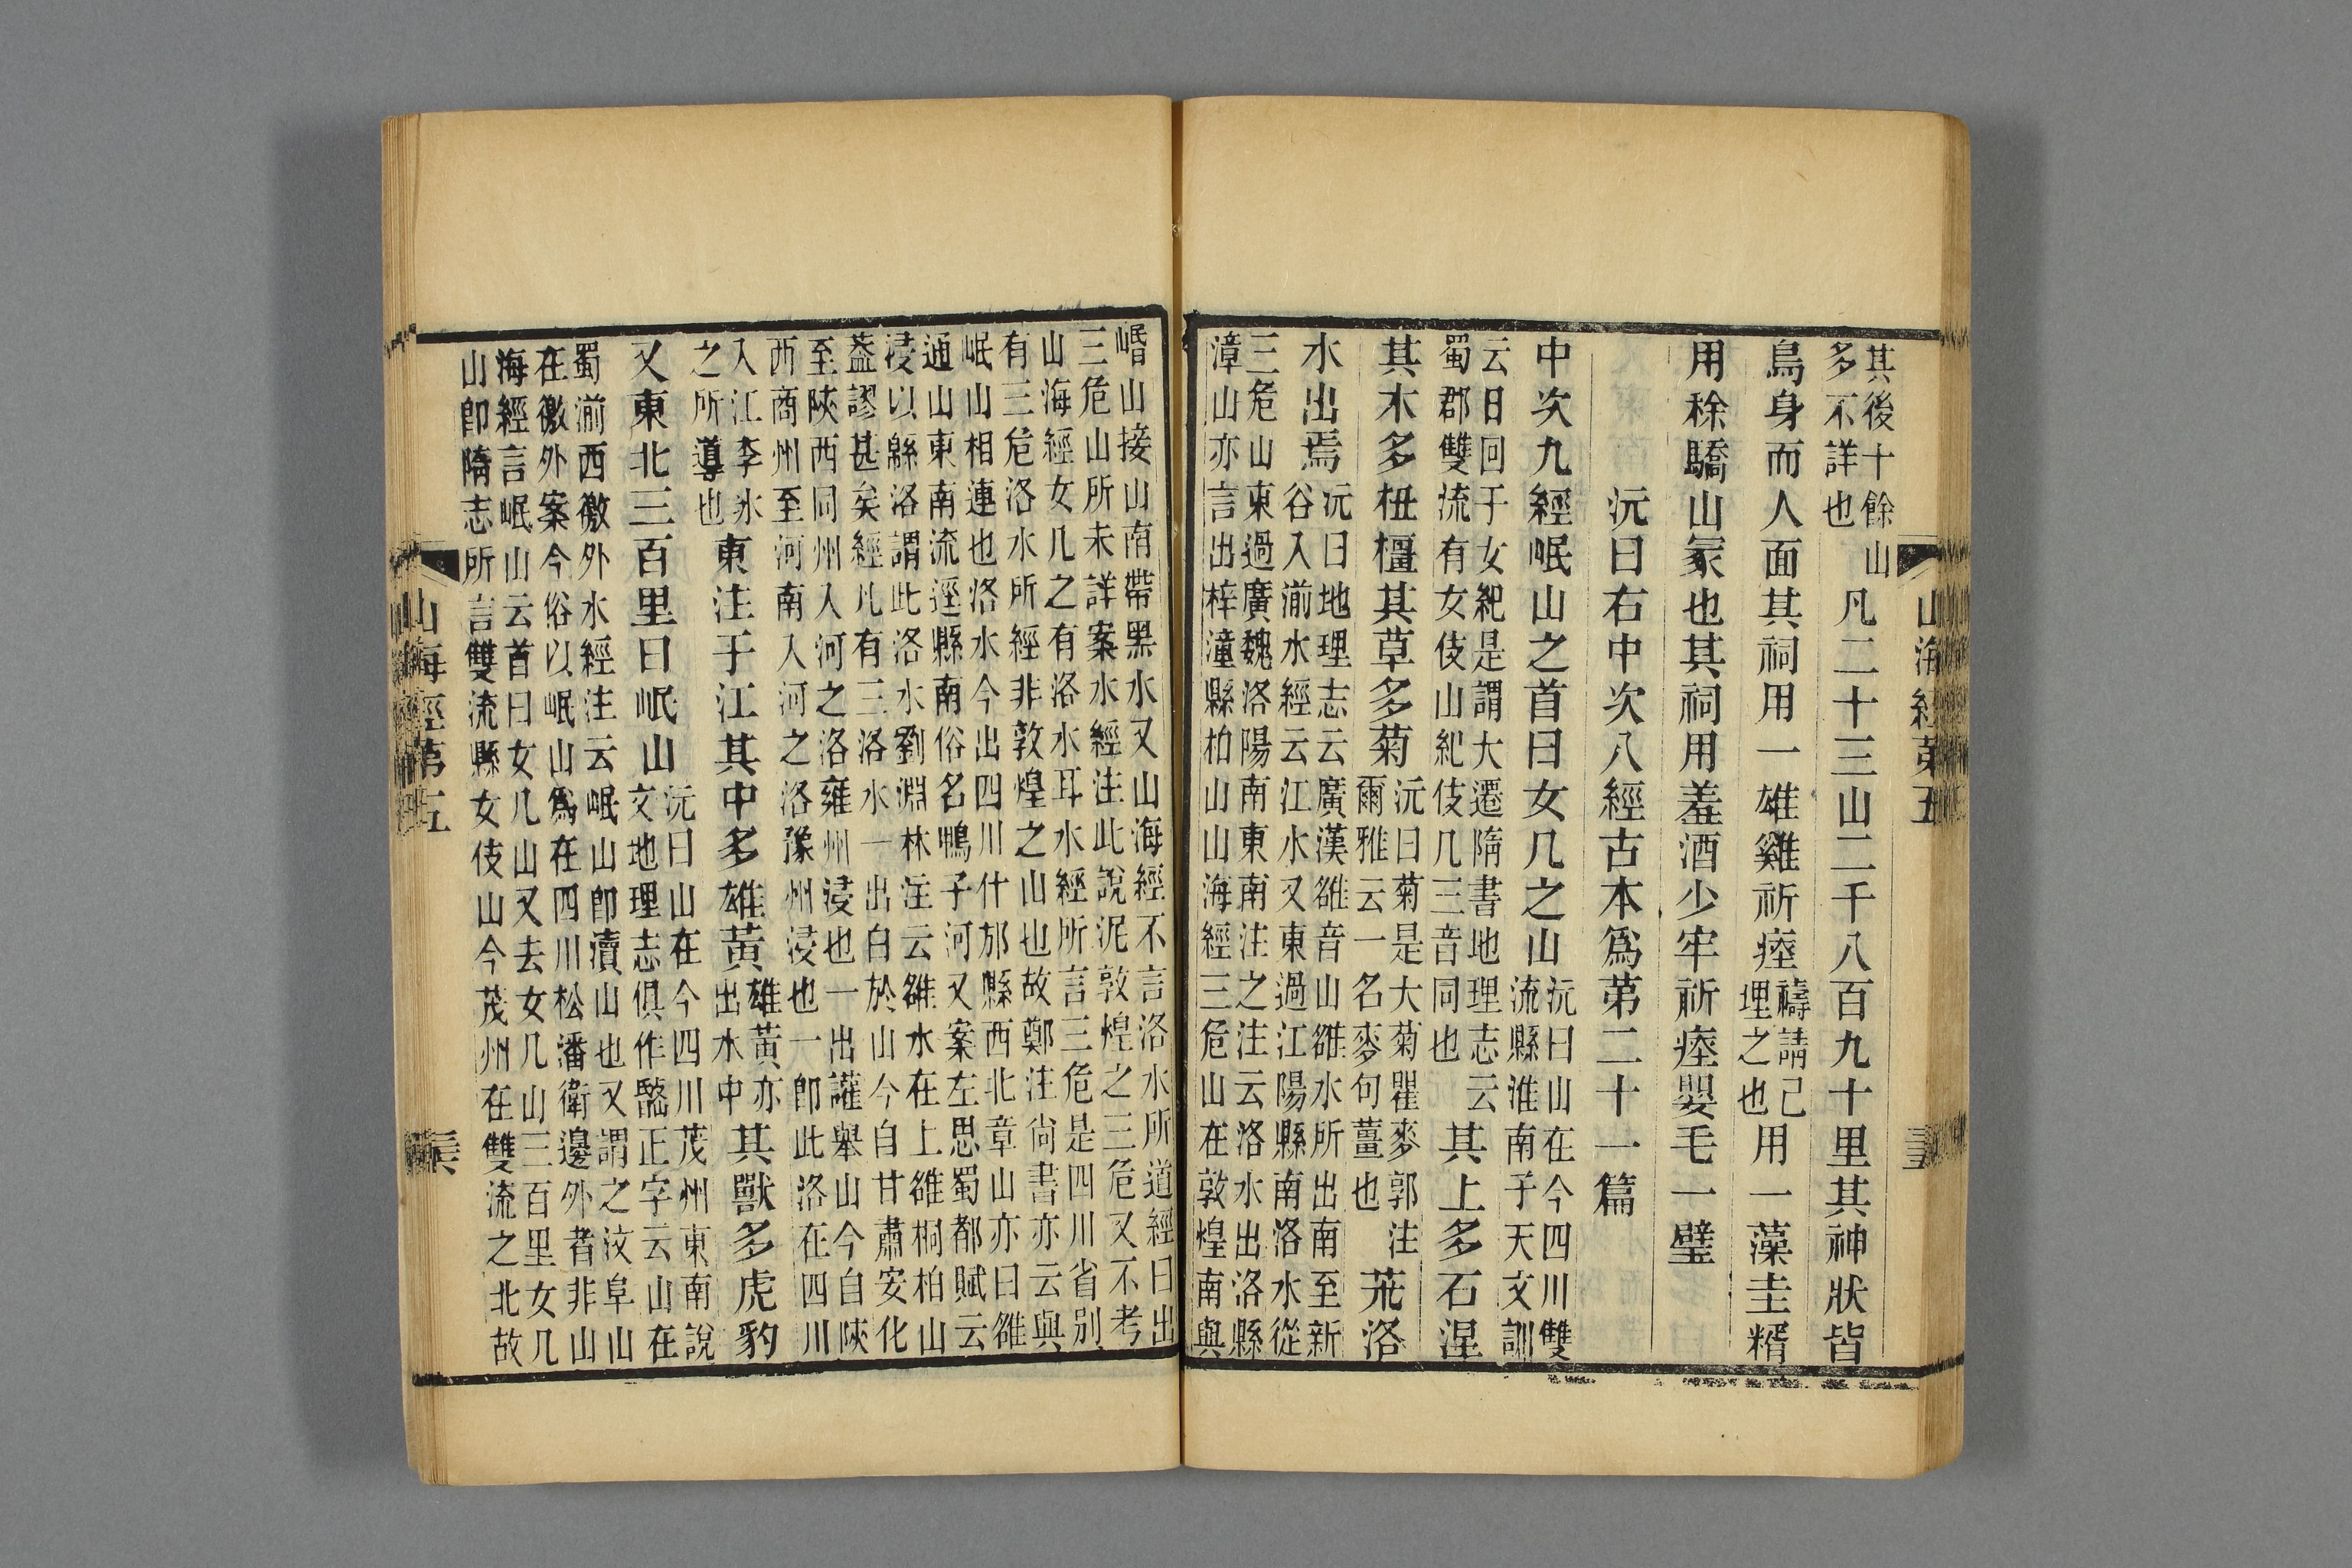 山海經第五
其後十餘山
多不詳也
凡二十三山二千八百九十里其神狀皆
鳥身而人面其祠用一雄雞祈瘞
禱請已
埋之也
用一藻圭糈
用稌驕山冢也其祠用羞酒少牢祈瘞嬰毛一璧
沅曰右中次八經古本爲第二十一篇
中次九經岷山之首曰女几之山
沅曰山在今四川雙
流縣淮南子天文訓
云日回于女紀是謂大遷隋書地理志云
蜀郡雙流有女伎山紀伎几三音同也
其上多石涅
其木多杻橿其草多菊
沅曰菊是大菊瞿麥郭注
爾雅云一名麥句薑也
茉洛
水出焉
沅曰地理志云廣漢雒音山雒水所出南至新
谷入湔水經云江水又東過江陽縣南洛水從
三危山東過廣魏洛陽南東南注之注云洛水出洛縣
漳山亦言出梓潼縣柏山山海經三危山在敦煌南與
㟭山接山南帶黑水又山海經不言洛水所道經曰出
三危山所未詳案水經注此說泥敦煌之三危又不考
山海經女几之有洛水耳水經所言三危是四川省別
有三危洛水所經非敦煌之山也故鄭注尚書亦云與
岷山相連也洛水今出四川什邡縣西北章山亦曰雒
通山東南流逕縣南俗名鴨子河又案左思蜀都賦云
浸以緜洛謂此洛水劉淵林注云雒水在上雒桐柏山
葢謬甚矣經凡有三洛水一出白於山今自甘肅安化
至陝西同州入河之洛雍州浸也一出讙舉山今自陝
西商州至河南入河之洛豫州浸也一卽此洛在四川
入江李氷
之所導也
東注于江其中多雄黃
雄黃亦
出水中
其獸多虎豹
又東北三百里曰岷山
沅曰山在今四川茂州東南說
文地理志俱作𢿢正字云山在
蜀湔西徼外水經注云岷山卽瀆山也又謂之汶阜山
在徼外案今俗以岷山爲在四川松潘衛邊外者非山
海經言岷山云首曰女几山又去女几山三百里女几
山卽隋志所言雙流縣女伎山今茂州在雙流之北故
山海經第五